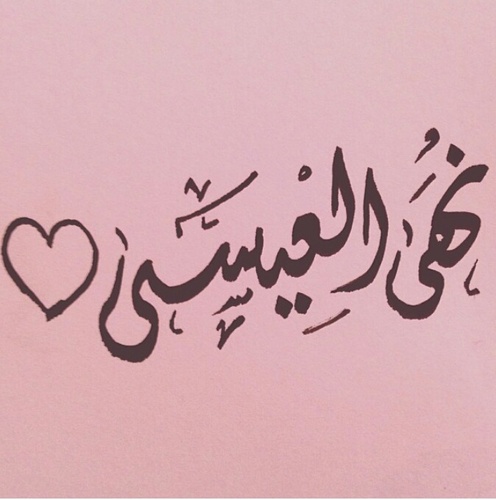 نُهَى العِيسَى